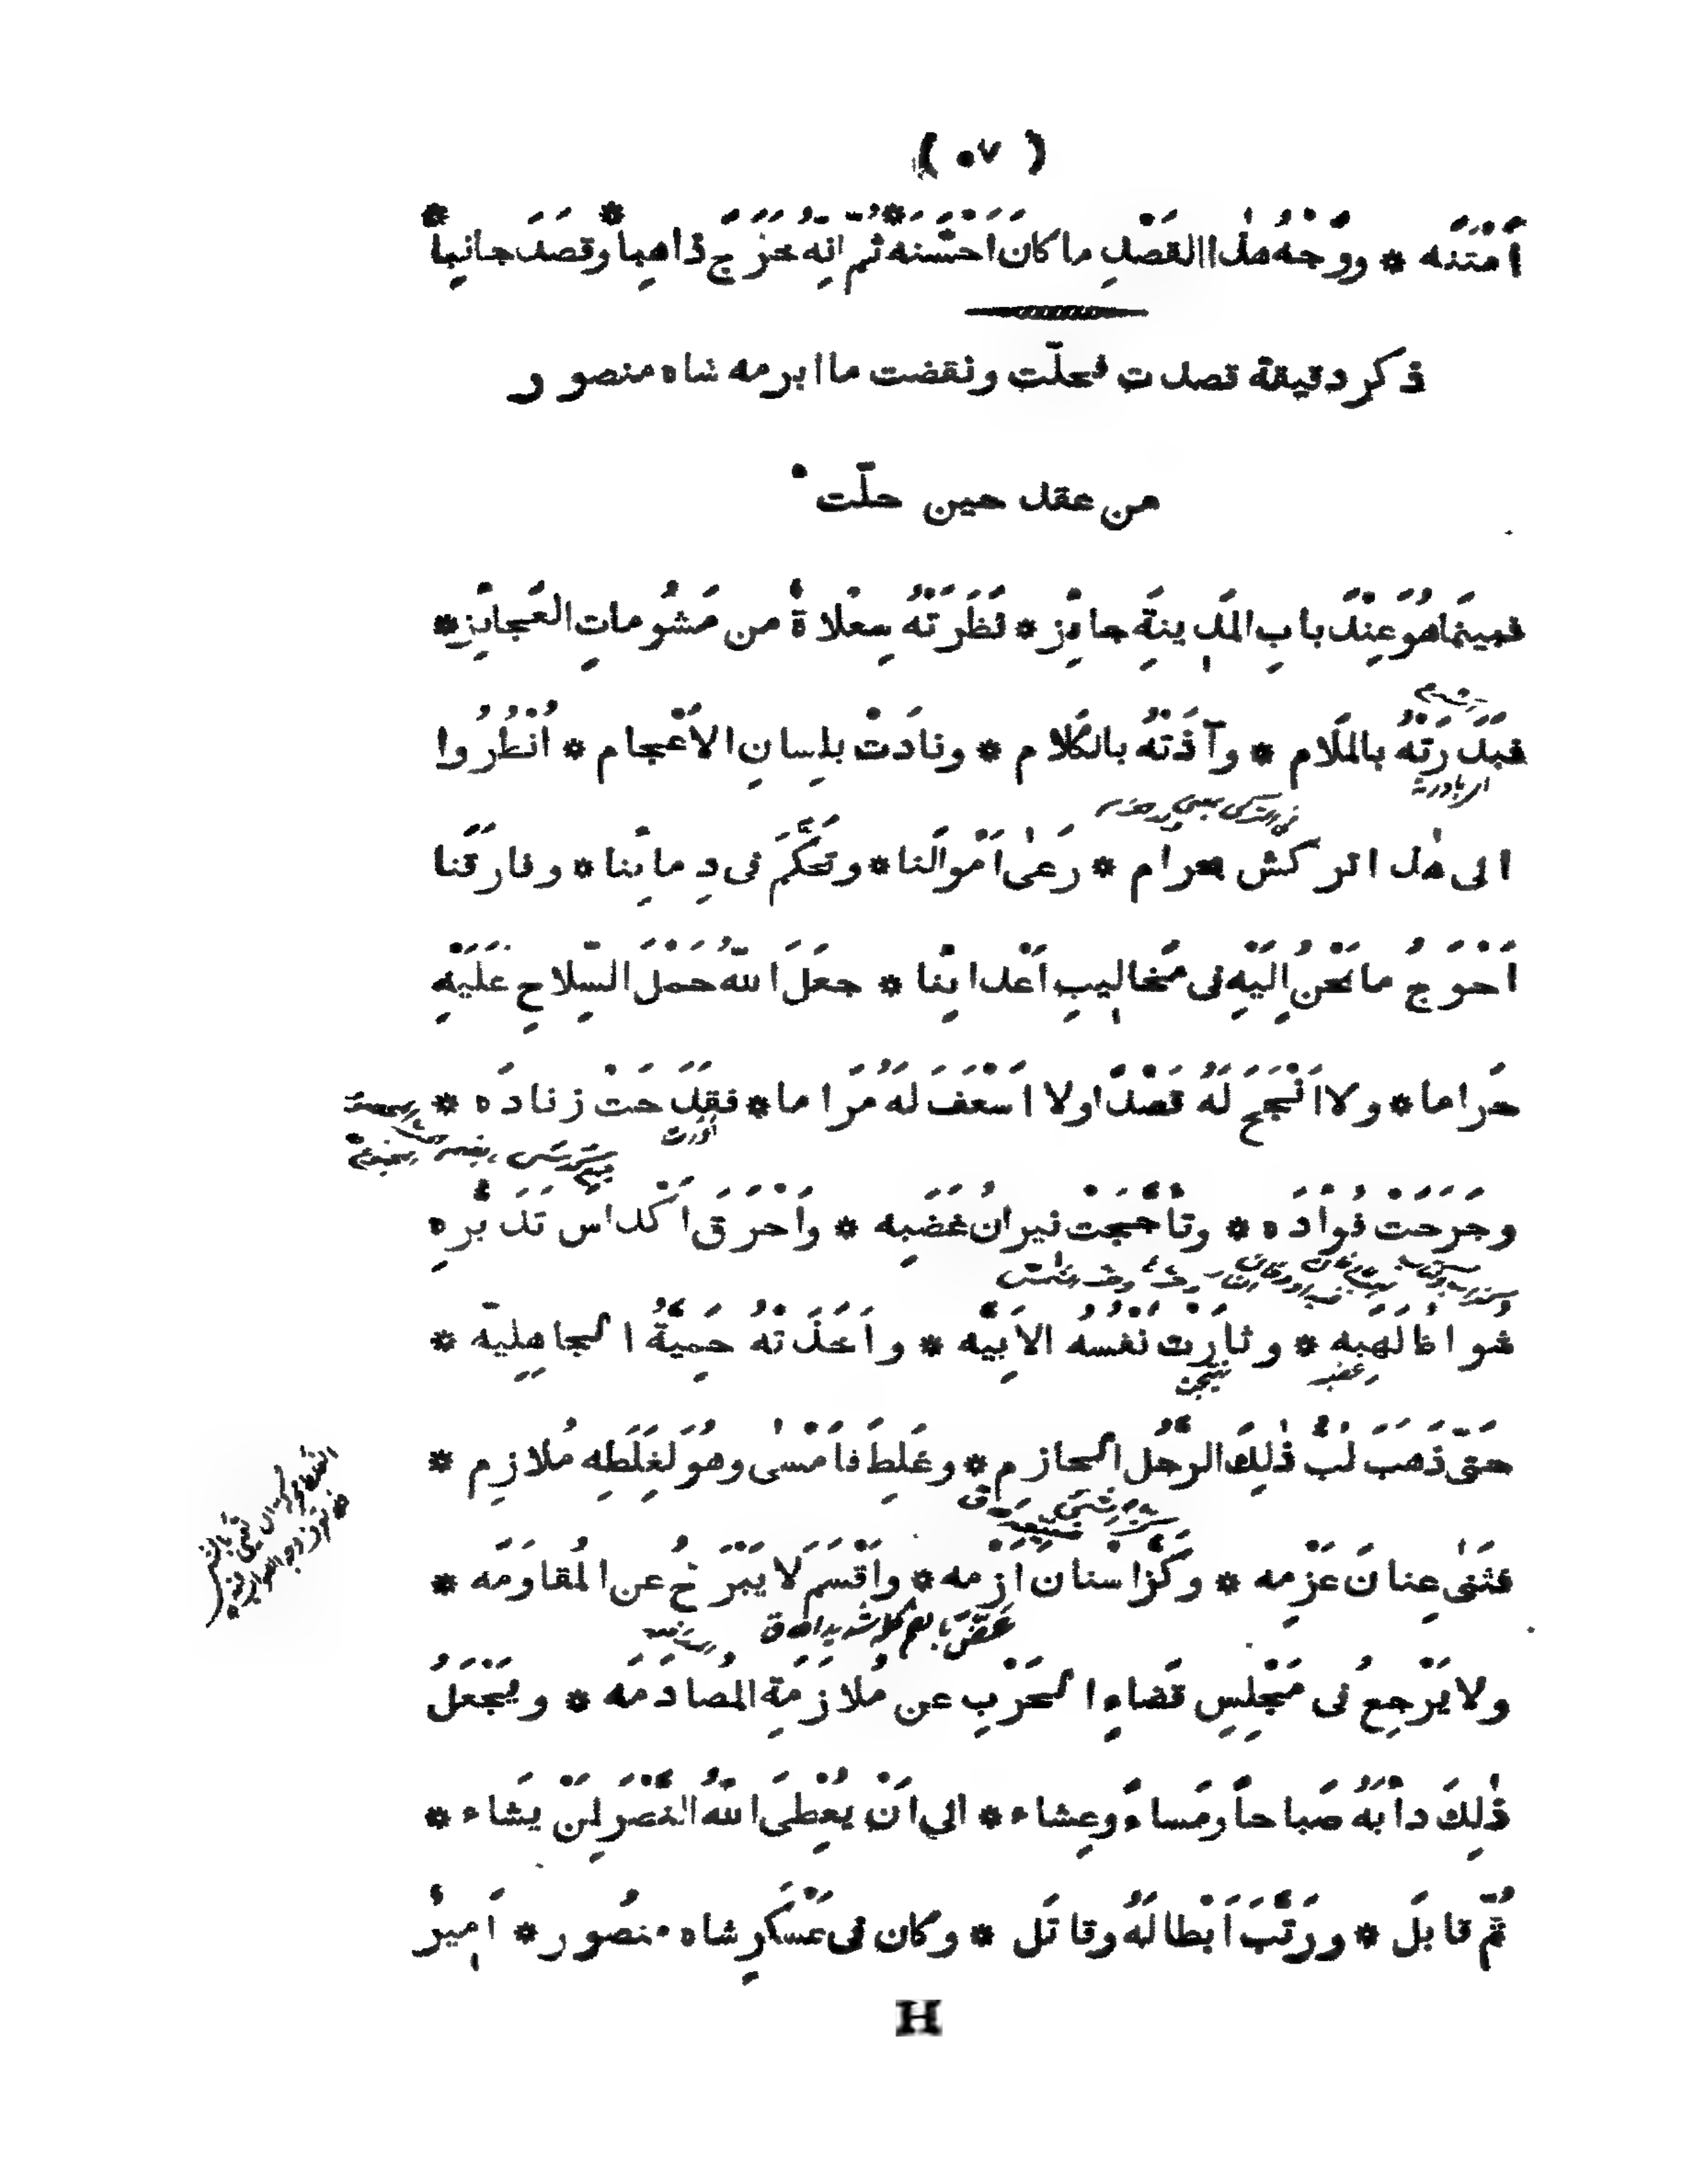 ( ٥٧ )
اَمْتَنَه * ووَجْهُ هٰذا القَصْدِ ما كانَ اَحْسَنَهُ * ثُمّ اِنّهُ خَرَجَ ذاهِباً * وقصَدَ جانِباً *
ذكر دقيقة قصدت فجلّت ونقضت ما ابرمه شاه منصور
من عقد حين حلّت
فبينَما هُوَ عِنْدَ بابِ المَدِينَةِ جايِز * نَظَرَتْهُ سِعْلاةٌ من مَشُوماتِ العَجايِزِ *
فبَدَرَتْهُ بالمَلام * وآذَتْهُ بالكَلام * ونادَتْ بلِسانِ الاَعْجام * اُنْظُرُوا
الى هٰذا تركش بحرام * رَعىٰ اَمْوالَنا * وتَحَكَّمَ فى دِمائِنا * وفارَقَنا
اَحْوَجُ ما نَحْنُ اِلَيْهِ فى مَخاليبِ اَعْدائِنا * جعَلَ اللّهُ حَمْلَ السِّلاحِ عَلَيْهِ
حَراما * ولا اَنْجَحَ لَهُ قَصْدًا ولا اَسْعَفَ لَهُ مَراما * فقَدَحَتْ زِنادَه *
وجَرَحَتْ فُوادَه * وتَأَجَّجَت نيرانُ غَضَبِه * واَحْرَقَ اَكْداسَ تَدَبُّرِهِ
شُواظُ لَهَبِه * وثارَتْ نَفْسُهُ الاَبِيَّه * واَخَذَتْهُ حَمِيَّةُ الجاهِلِيّه *
حَتّى ذَهَبَ لُبُّ ذٰلِكَ الرَّجُلِ الحازِم * وغَلِطَ فاَمْسٰى وهُوَ لِغَلَطِه مُلازِم *
فثَنىٰ عِنانَ عَزْمِه * وكَزَّ اسنان اَزْمه * واَقْسَمَ لا يَبْرَحُ عن المُقاوَمَه *
ولا يَرْجِعُ فى مَجْلِسِ قَضاءِ الحَرْبِ عن مُلازَمَةِ المُصادَمَه * ويَجْعَلُ
ذٰلِكَ دابَهُ صَباحاً ومَساءً وعِشاء * الي اَنْ يُعْطِىَ اللّهُ النَّصْرَ لِمَنْ يشاء *
ثُمّ قابَلَ * ورَتَّبَ اَبْطالَهُ وقاتَل * وكان فى عَسْكَرِ شاه منصُور * اَمِيرٌ
H